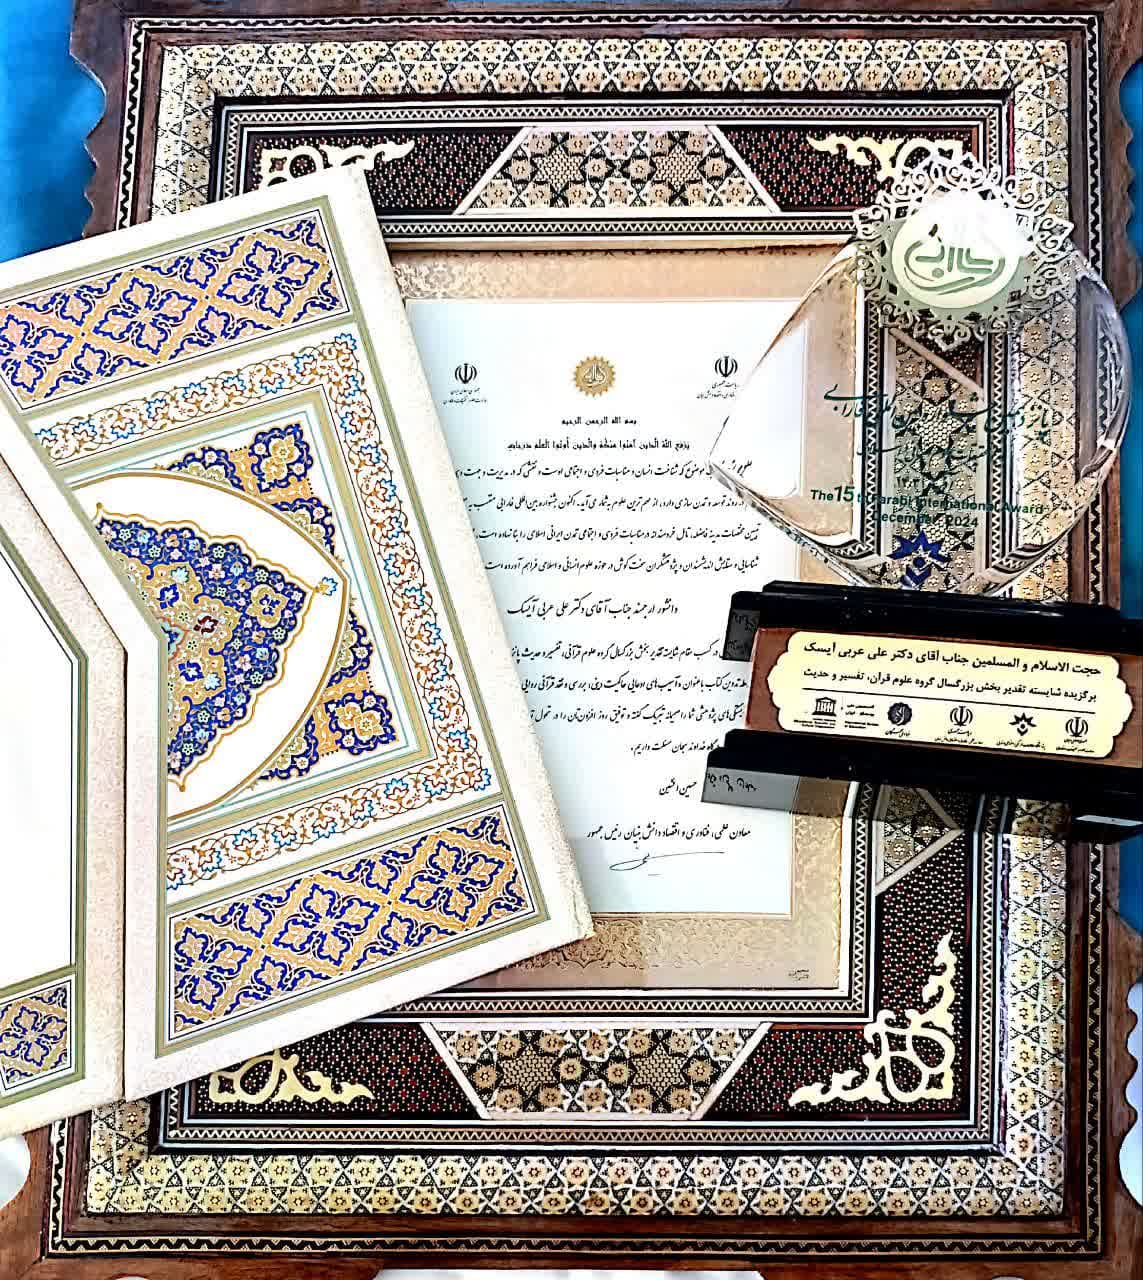 جمهوری اسلامی ایران
ریاست جمهوری
بسم الله الرحمن الرحیم
یرفع الله الذین آمنوا منکم والذین أوتوا العلم درجات
موضوعی که شناخت انسان و مناسبات فردی و اجتماعی اوست و نقشی که در مدیریت و جهت
روند توسعه و تمدن سازی دارد، از مهم‌ترین علوم به شمار می آید. اکنون جشنواره بین‌المللی فارابی منتسب به
تبیین مختصات مدینه فاضله، تامل خردمندانه در مناسبات فردی و اجتماعی تمدن ایرانی اسلامی را بنا نهاده است.
شناسایی و ستایش اندیشمندان و پژوهشگران سخت کوش در حوزه علوم انسانی و اسلامی فراهم آورده است
دانشور ارجمند جناب آقای دکتر علی عربی آیسک
در کسب مقام شایسته تقدیر بخش بزرگسال گروه علوم قرآنی، تفسیر و حدیث
تدوین کتاب با عنوان آسیب‌های ادعایی حاکمیت دینی، بررسی و نقد قرآنی روایی
پژوهشی شما را صمیمانه تبریک گفته و توفیق روز افزون‌تان را در تحول
خداوند سبحان مسئلت داریم.
حسین افشین
معاون علمی، فناوری و اقتصاد دانش بنیان رئیس جمهور
فارابی
پانزدهمین جشنواره بین المللی فارابی
The 15th Farabi International Award
December 2024
حجت الاسلام و المسلمین جناب آقای دکتر علی عربی آیسک
برگزیده شایسته تقدیر بخش بزرگسال گروه علوم قرآن، تفسیر و حدیث